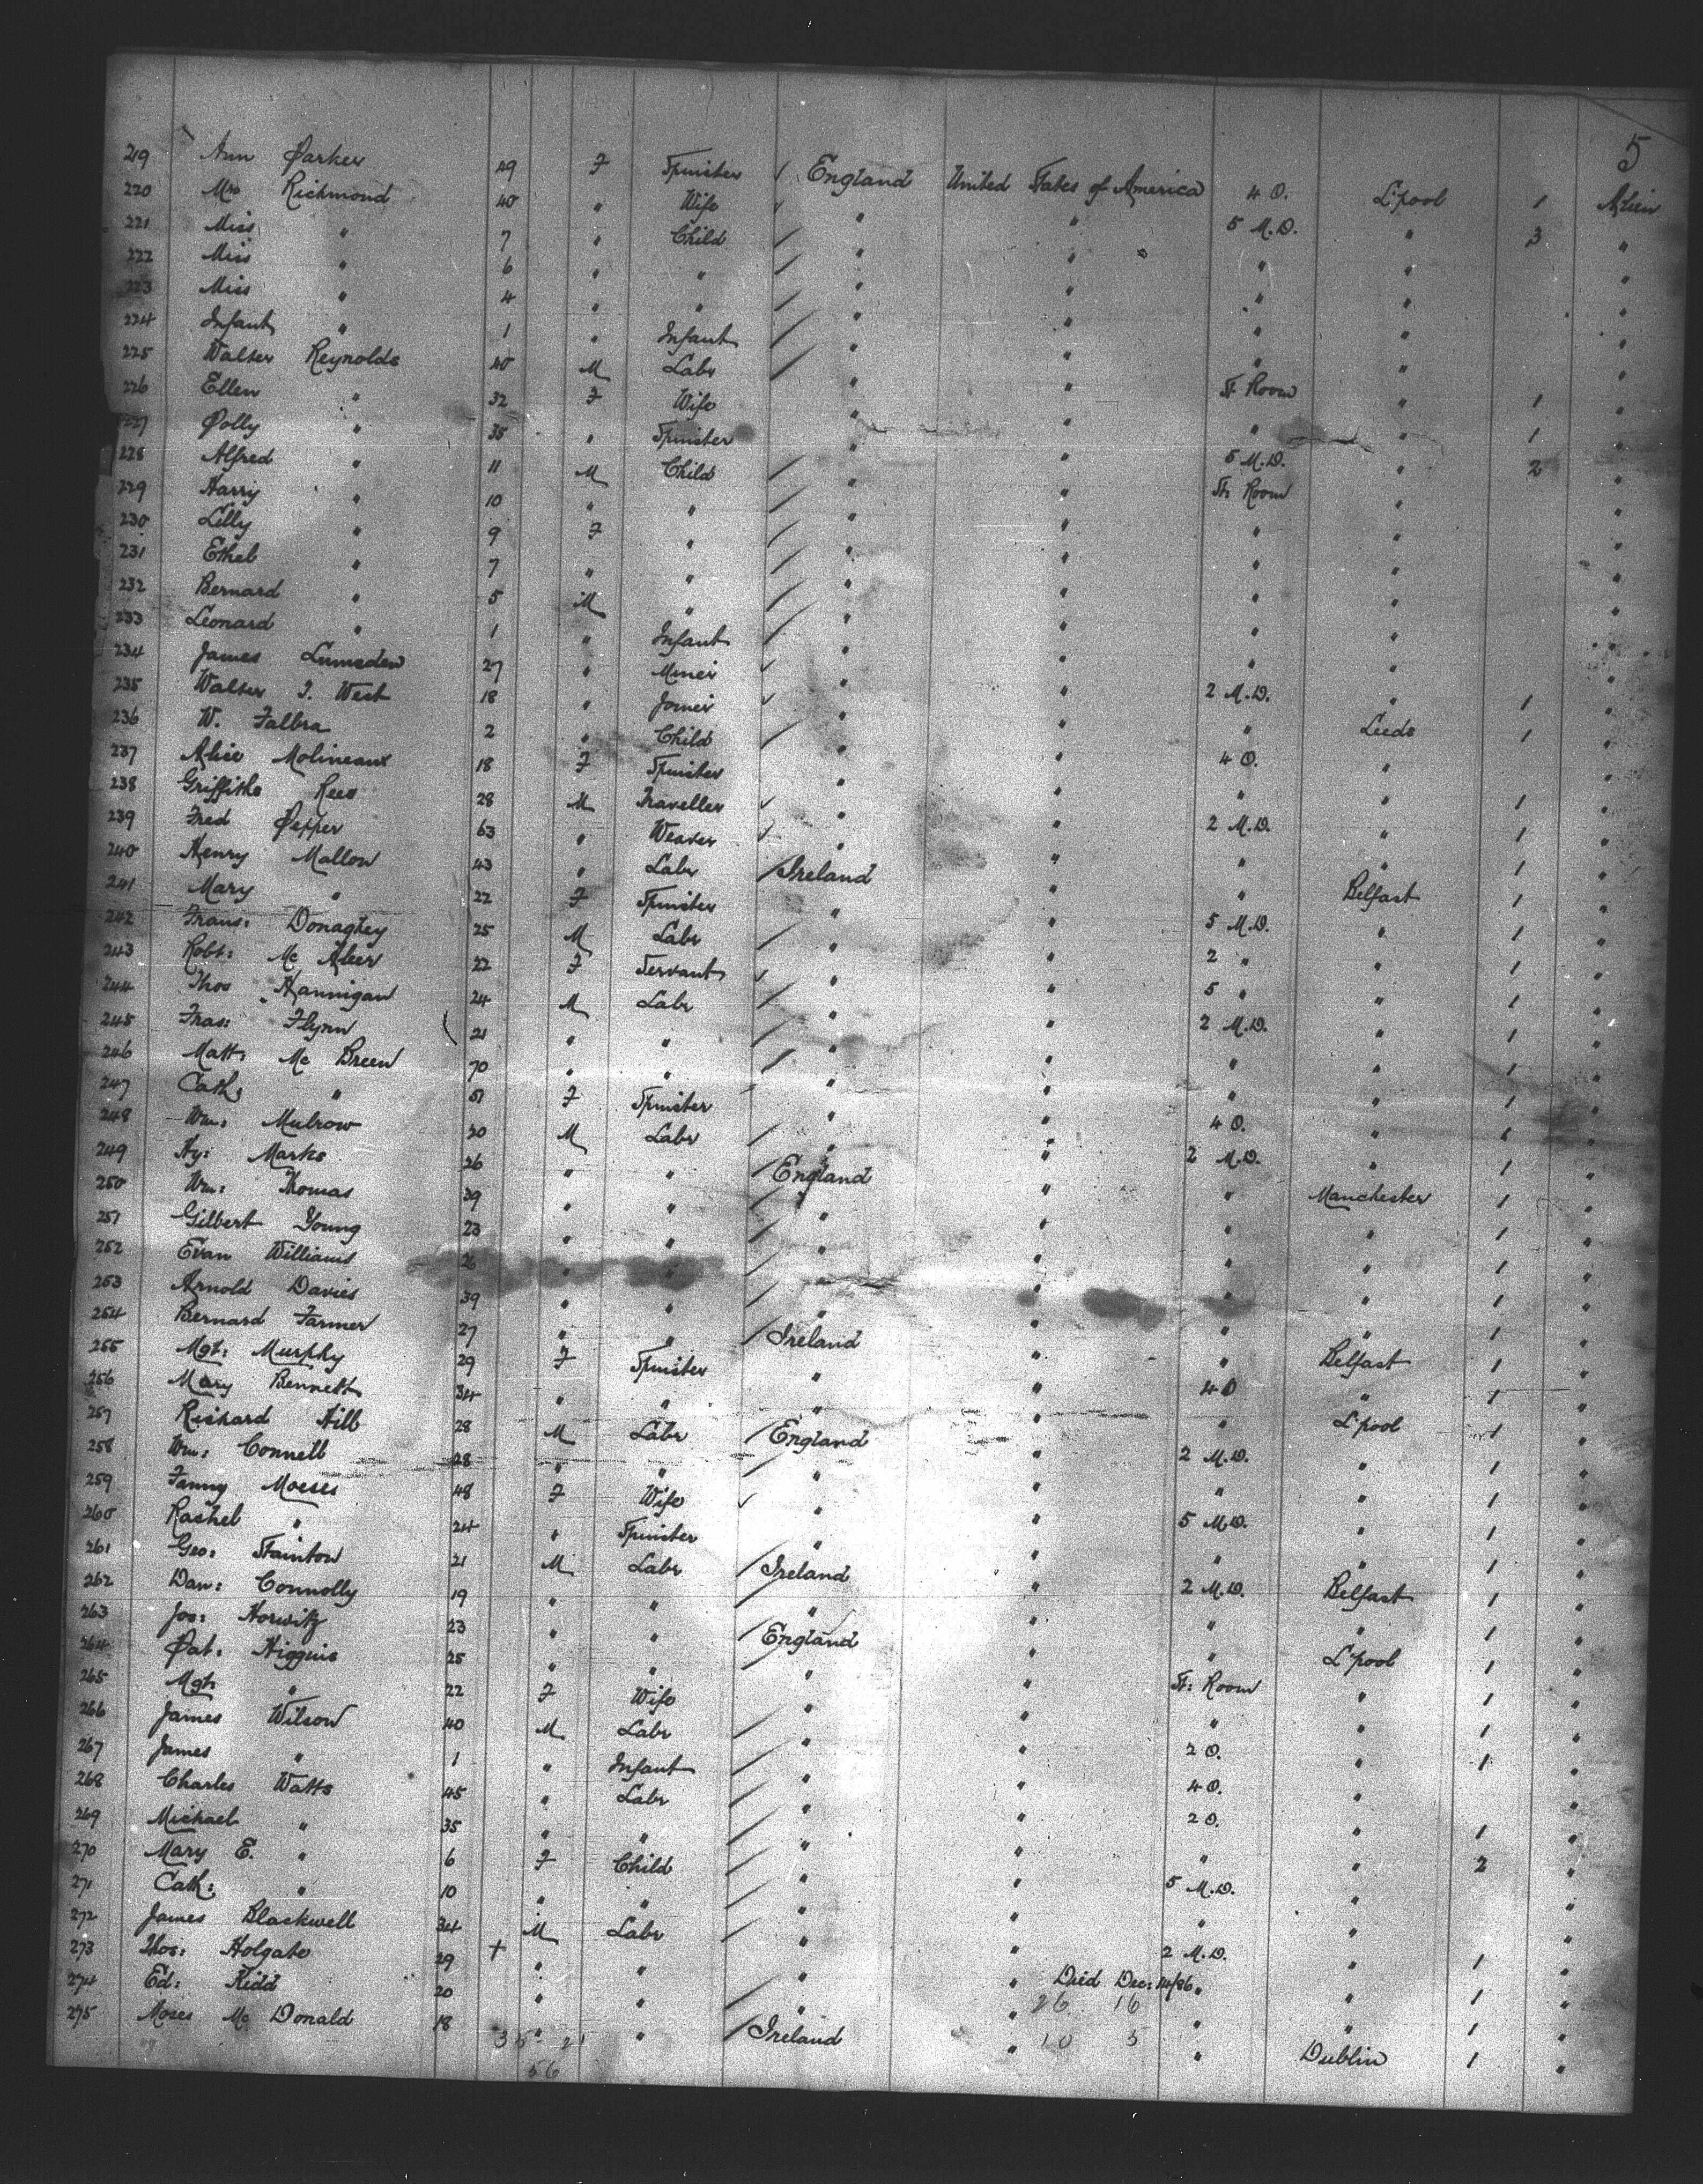 5
219 Ann Parker 29 F Spinster England United States of America 4 O. L'pool 1 Alien
220 Mrs Richmond 40 " Wife " " 5 M.D. " 3 "
221 Miss " 7 " Child " " " " "
222 Miss " 6 " " " " " " "
223 Miss " 4 " " " " " " "
224 Infant " 1 " Infant " " " " "
225 Walter Reynolds 40 M Labr " " St. Room " 1 "
226 Ellen " 32 F Wife " " " " 1 "
227 Polly " 35 " Spinster " " 5 M.D. " 2 "
228 Alfred " 11 M Child " " St: Room "
229 Harry " 10 " " " " " " "
230 Lilly " 9 F " " " " " "
231 Ethel " 7 " " " " " " "
232 Bernard " 5 M " " " " " "
233 Leonard " 1 " Infant " " " " "
234 James Lumsden 27 " Miner " " 2 M.D. " 1 "
235 Walter J. West 18 " Joiner " " " Leeds 1 "
236 W. Falbra 2 " Child " " 4 O. " "
237 Alice Molineaux 18 F Spinster " " " " 1 "
238 Griffiths Rees 28 M Traveller " " 2 M.D. " 1 "
239 Fred Pepper 63 " Weaver " " " " 1 "
240 Henry Mallon 43 " Labr Ireland " " Belfast 1 "
241 Mary " 22 F Spinster " " 5 M.D. " 1 "
242 Frans: Donaghey 25 M Labr " " 2 " " 1 "
243 Robt: Mc Aleer 22 F Servant " " 5 " " 1 "
244 Thos Hannigan 24 M Labr " " 2 M.D. " 1 "
245 Fras: Flynn 21 " " " " " " 1 "
246 Matt: Mc Breen 70 " " " " " " 1 "
247 Cath: " 51 F Spinster " " 4 O. " 1 "
248 Wm: Mulrow 20 M Labr " " 2 M.D. " 1 "
249 Hy: Marks 26 " " England " " Manchester 1 "
250 Wm: Thomas 39 " " " " " " 1 "
251 Gilbert Young 23 " " " " " " 1 "
252 Evan Williams 26 " " " " " " 1 "
253 Arnold Davies 39 " " " " " " 1 "
254 Bernard Farmer 27 " " Ireland " " Belfast 1 "
255 Mgt: Murphy 29 F Spinster " " 4 O " 1 "
256 Mary Bennett 34 " " " " " L'pool 1 "
257 Richard Hill 28 M Labr England " 2 M.D. " 1 "
258 Wm: Connell 28 " " " " " " 1 "
259 Fanny Moeses 48 F Wife " " 5 M.D. " 1 "
260 Rachel " 24 " Spinster " " " " 1 "
261 Geo: Stainton 21 M Labr Ireland " 2 M.D. Belfast 1 "
262 Dan: Connolly 19 " " " " " " 1 "
263 Jos: Horwitz 23 " " England " " L'pool 1 "
264 Pat: Higgins 25 " " " " St: Room " 1 "
265 Mgt: " 22 F Wife " " " " 1 "
266 James Wilson 40 M Labr " " 2 O. " 1 "
267 James " 1 " Infant " " 4 O. " "
268 Charles Watts 45 " Labr " " 2 O. " 1 "
269 Michael " 35 " " " " " " 2 "
270 Mary E. " 6 F Child " " 5 M.D. " "
271 Cath: " 10 " " " " " " "
272 James Blackwell 34 M Labr " " 2 M.D. " 1 "
273 Thos: Holgate 29 + " " " " Died Dec: 14/86 " " 1 "
274 Ed: Kidd 20 " " " " 26 16 " " 1 "
275 Moses Mc Donald 18 " " Ireland " 10 5 " Dublin 1 "
35 21
56